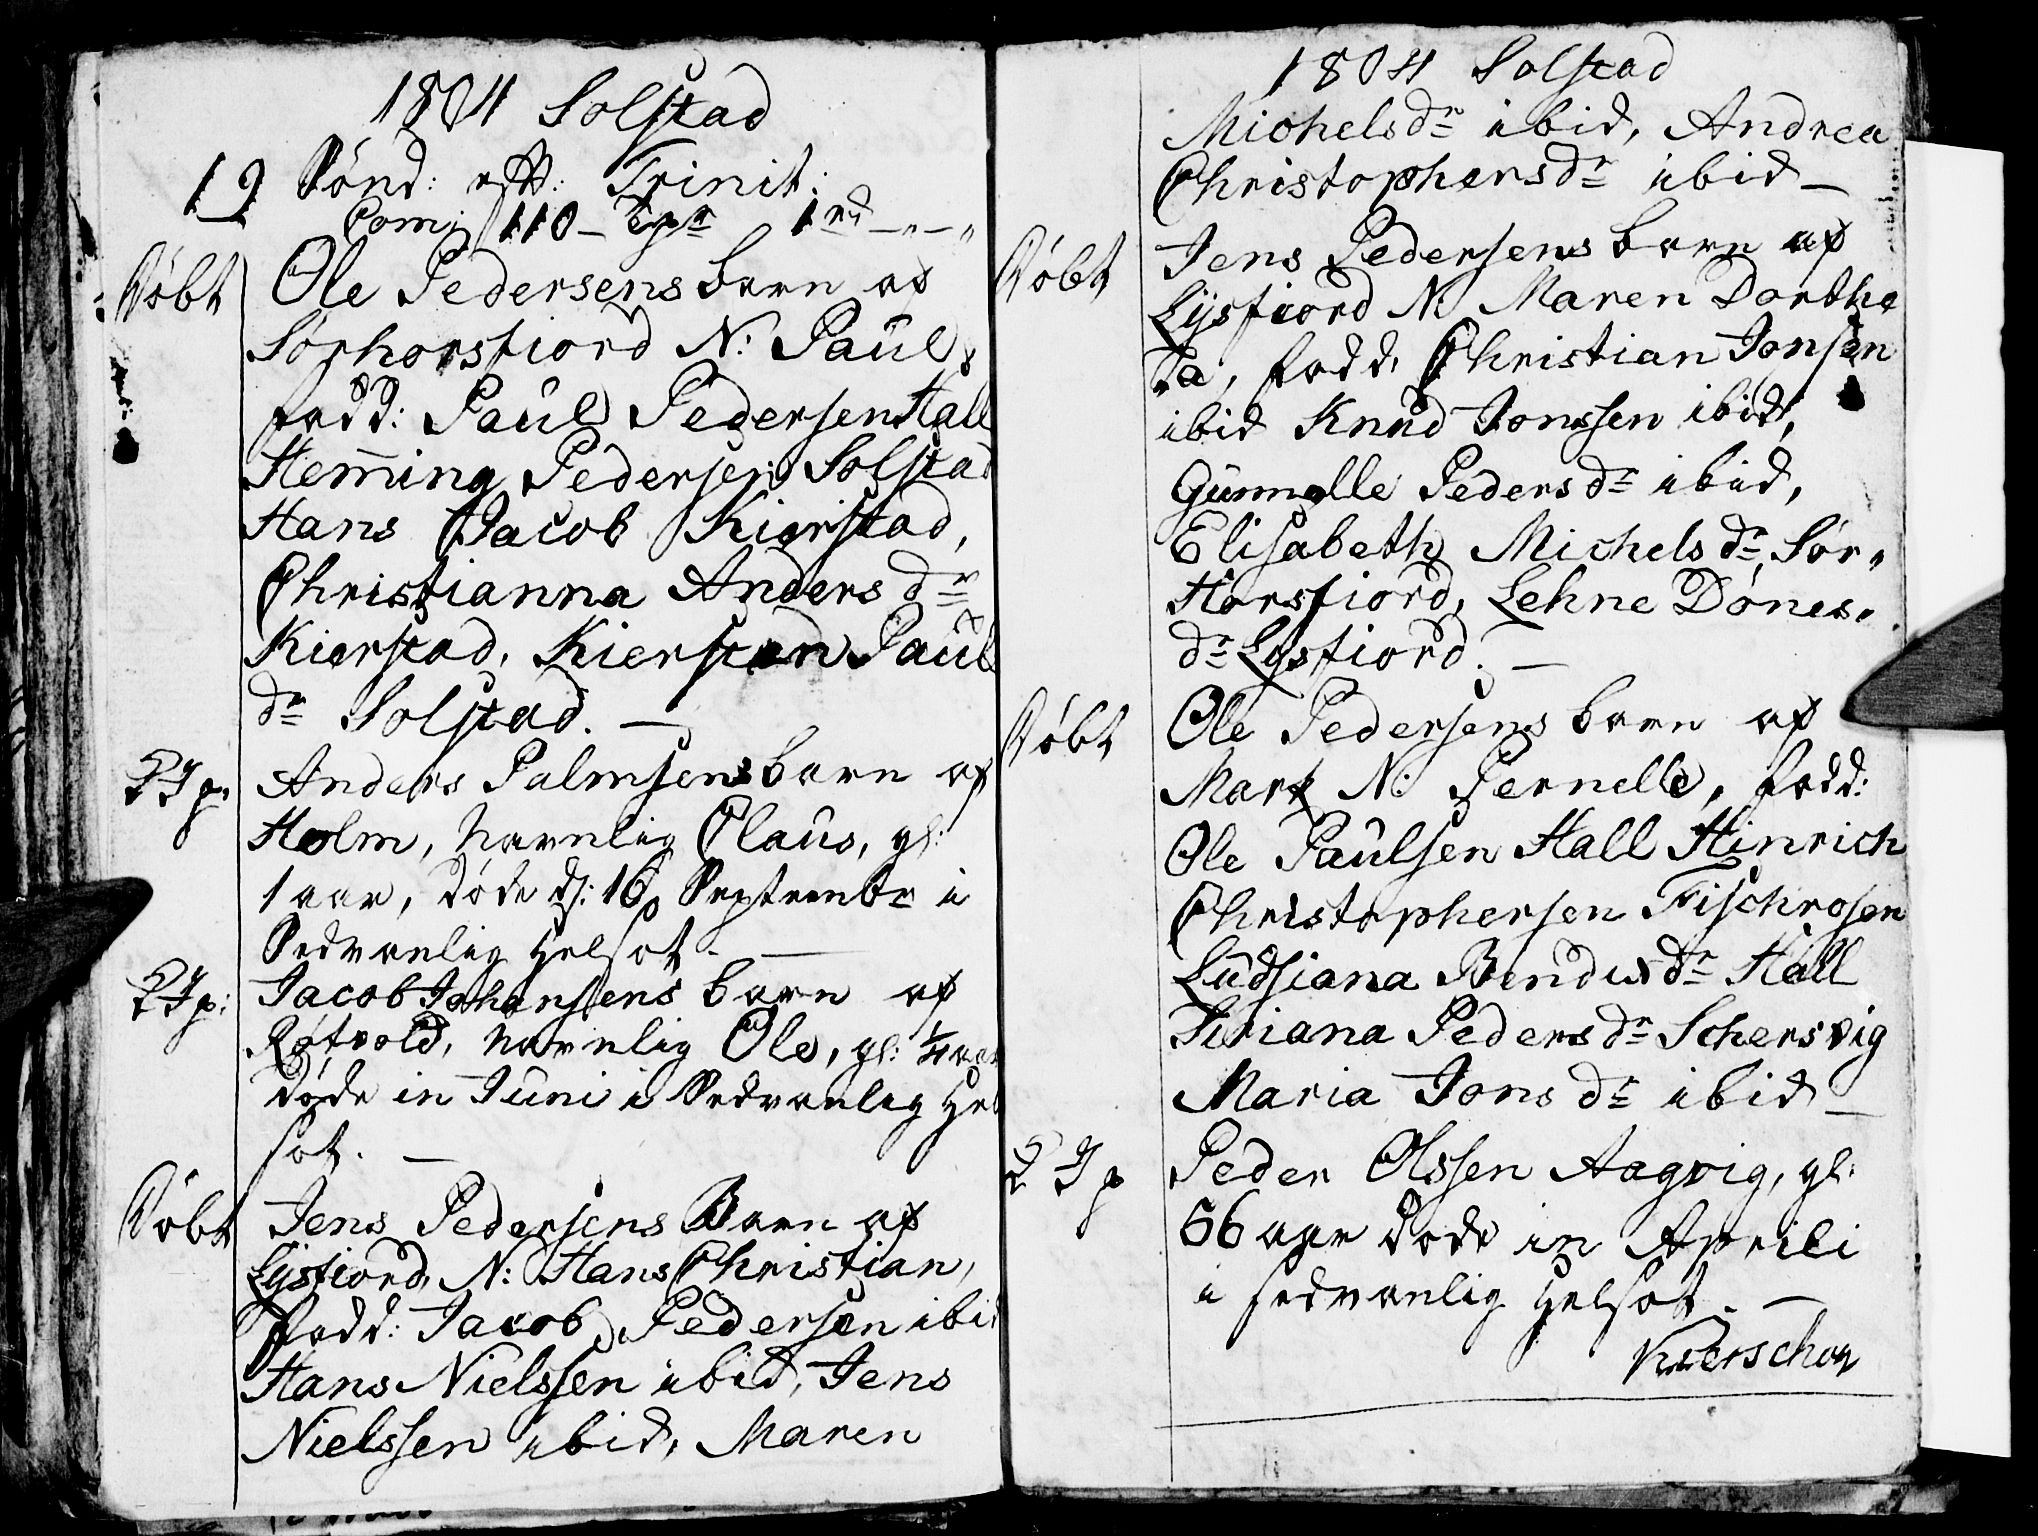 1804 Solstad
19 Sönd: eft: Trinit:
Com: 110 – 1 rd – „ – „
Döbt Ole Pedersens barn af
Sørhorsfiord N: Paul,
fadd: Paul Pedersen Hall
Hem̅ing Pedersen Solstad
Hans Jacob Kierstad,
Christianna Anders dr
Kierstad, Kiersten Paul
dr Solstad. —
Jp: Anders Palmsens barn af
Holm, navnlig Olaus, gl:
1 aar, döde d: 16 Septembr i
Sedvanlig Helsot. —
Jp: Jacob Johansens barn af
Røtvold, navnlig Ole, gl: ¼ aar
döde in Juni i Sedvanlig Hel
sot. —
Döbt Jens Pedersens Barn af
Lysfiord, N: Hans Christian,
fadd: Jacob Pedersen ibid
Hans Nielssen ibid, Jens
Nielssen ibid, Maren
1804 Solstad
Michelsdr ibid, Andrea
Christophersdr ibid —
Döbt Jens Pedersens barn af
Lysfiord N: Maren Dorthe
a, fadd: Christian Jonsen
ibid Knud Jonssen ibid,
Gunnelle Pedersdr ibid,
Elisabeth Michelsdr Sør„
Horsfiord, Lehne Dönes„
dr Lysfiord. —
Döbt Ole Pedersens barn af
Mark N: Pernelle, fadd:
Ole Paulsen Hall Hinrich
Christophersen Fischrosen
Ludsiana Bendixdr Hall
Siriana Pedersdr Schersvig
Maria Jonsdr ibid —
Jp Peder Olssen Aagvig, gl:
56 aar döde in Aprili
i sedvanlig Helsot. —